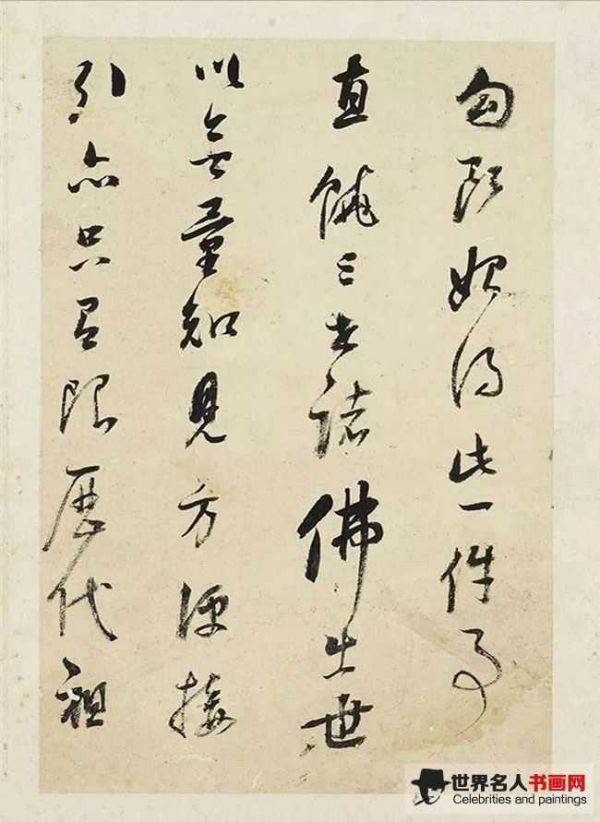 勾斷始得此一件事
直饒三世諸佛出世
以無量知見方便接
引亦只有限歷代祖
世界名人书画网
Celebrities and paintings